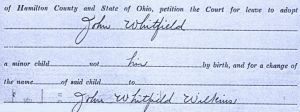 of Hamilton County and State of Ohio, petition the Court for leave to adopt
John Whitfield
a minor child not his by birth, and for a change of
the name of said child to
John Whitfield Wilkins